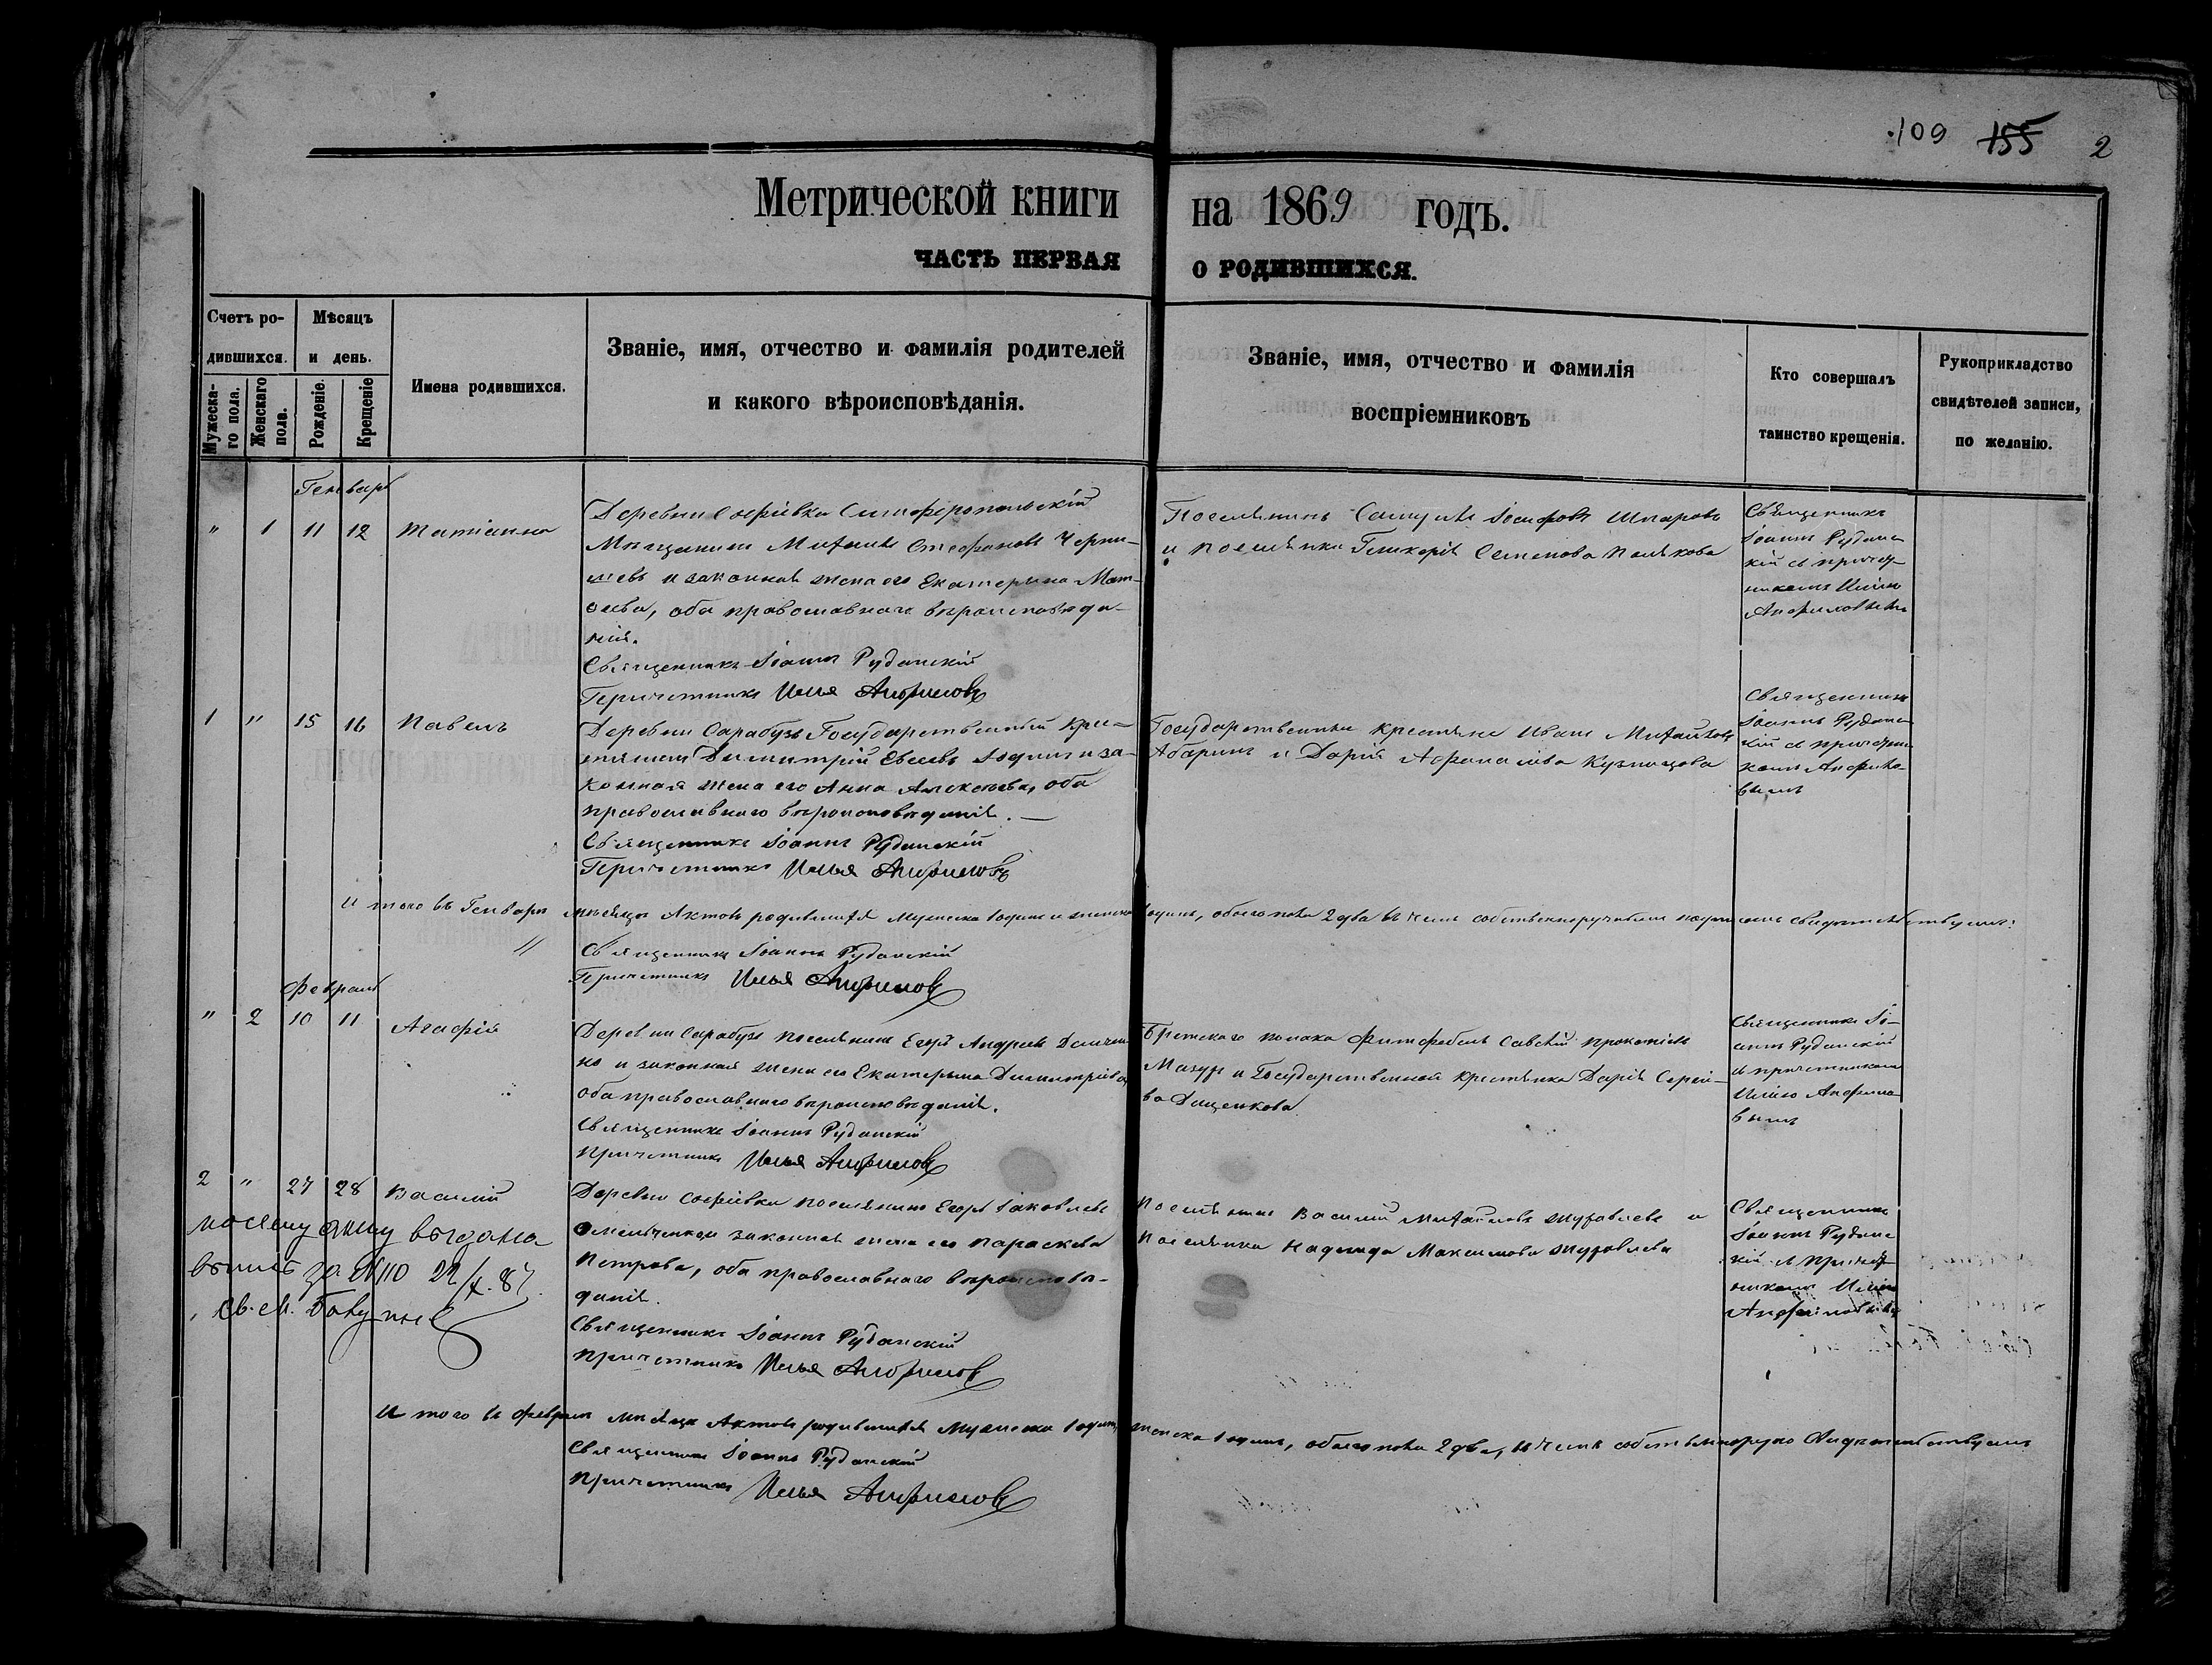 109 155 2
Метрической книги на 1869 годъ.
ЧАСТЬ ПЕРВАЯ О РОДИВШИХСЯ.
Счетъ ро-
дившихся.
Мужеска-
го пола.
Женскаго
пола.
Мѣсяцъ
и день.
Рожденіе.
Крещеніе
Имена родившихся.
Званіе, имя, отчество и фамилія родителей
и какого вѣроисповѣданія.
Званіе, имя, отчество и фамилія
воспріемниковъ
Кто совершалъ
таинство крещенія.
Рукоприкладство
свидѣтелей записи,
по желанію.
Генварь
" 1 11 12 Татіанна
Деревни Софіевки Симферопольскій
Мѣщанинъ Михаилъ Стефановъ Черни-
шевъ и законная жена его Екатерина Мат-
ѳеева, оба православнаго вѣроисповѣда-
нія.
Священникъ Іоаннъ Руданскій
Причетникъ Илья Анфиловъ
Поселянинъ Самуилъ Іосифовъ Шпаровъ
и поселянка Гликерія Семенова Полякова
Священникъ
Іоаннъ Рудан-
кій съ причет-
никомъ Иліею
1 " 15 16 Павелъ
Деревни Сарабузъ Государственный кре-
стянинъ Димитрій Евсеевъ и за-
конная жена его Анна Алексѣева, оба
православнаго вѣроисповѣданія.
Священникъ Іоаннъ Руданскій
Причетникъ Илья Анфиловъ
Государственный крестянинъ Иванъ Михайловъ
и Дарія Афанасіева Кузнецова
Священникъ
Іоаннъ Рудан-
кій съ причетни-
комъ Анфило-
вымъ
И того въ Генварѣ мѣсяцѣ Актовъ родившихся Мужеска 1 одинъ и женска 1 одинъ, обоего пола 2 два въ чемъ собственноручнымъ подписомъ свидѣтельствуемъ:
Священникъ Іоаннъ Руданскій
Причетникъ Илья Анфиловъ
Февраль
" 2 10 11 Агафія
Деревни Сарабузъ поселянинъ Егоръ Андреевъ
но и законная жена его Екатерына Димитріева,
оба православнаго вѣроисповѣданія.
Священникъ Іоаннъ Руданскій
Причетникъ Илья Анфиловъ
Брестскаго полка Савелій
Мазуръ и Государственная крестянка Дарія Сергіе-
ва Дащенкова.
Священникъ Іо-
аннъ Руданскій
съ причетникомъ
Иліею Анфило-
вымъ
2 " 27 28 Василій
Деревни Софіевки поселянинъ Егоръ Іаковлевъ
законная жена его Параскева
Петрова, оба православнаго вѣроисповѣ-
данія.
Священникъ Іоаннъ Руданскій
Причетникъ Илья Анфиловъ
Поселянинъ Василій Михайловъ Журавлевъ и
поселянка Надежда Максимова Журавлева
Священникъ
Іоаннъ Рудан-
кій съ причет-
никомъ Иліею
По сему акту выдана
выпись за №110 22/X. 87.
Св. М.
И того въ Февралѣ мѣсяцѣ Актовъ родившихся Мужеска 1 одинъ, женска 1 одинъ, обоего пола 2 два, въ чемъ собственноручно свидѣтельствуемъ
Священникъ Іоаннъ Руданскій
Причетникъ Илья Анфиловъ